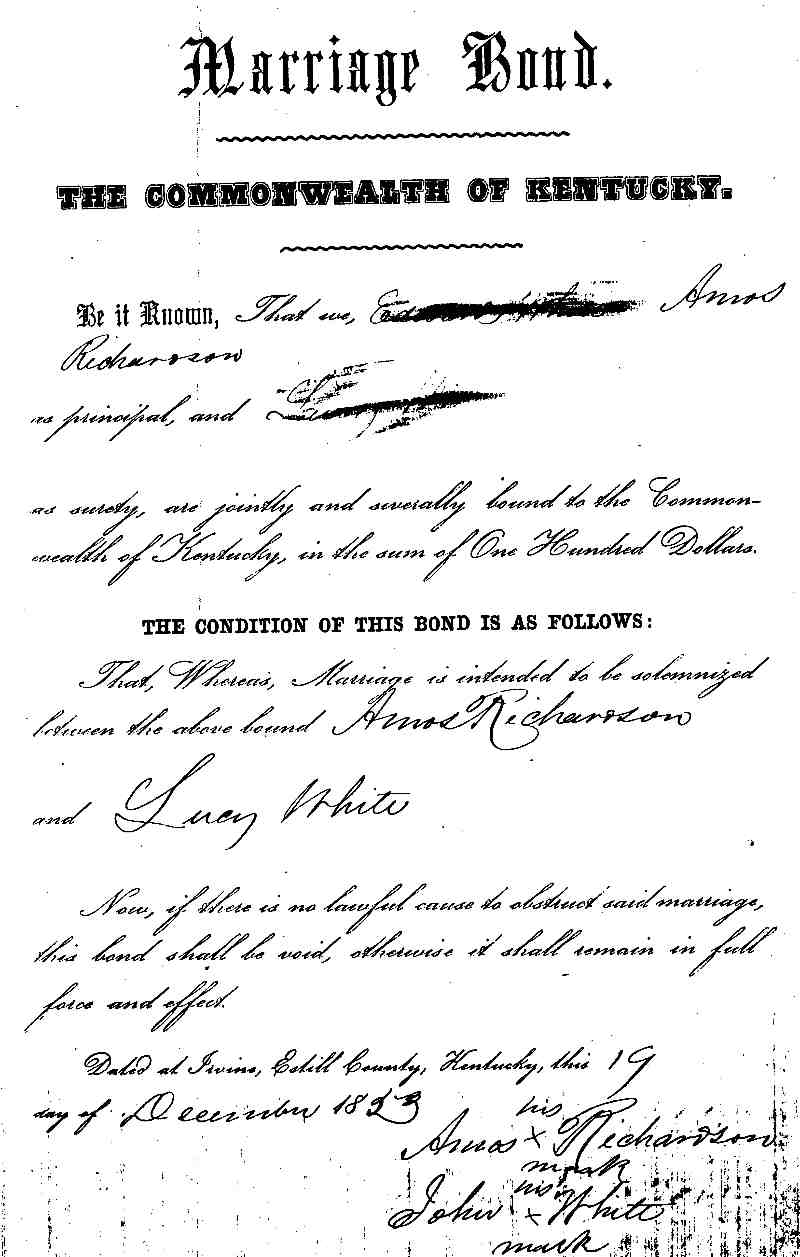 Marriage Bond.
THE COMMONWEALTH OF KENTUCKY.
Be it Known, That we, Amos
Richardson
as principal, and
as surety, are jointly and severally bound to the Common-
wealth of Kentucky, in the sum of One Hundred Dollars.
THE CONDITION OF THIS BOND IS AS FOLLOWS:
That, Whereas, Marriage is intended to be solemnized
between the above bound Amos Richardson
and Lucy White
Now, if there is no lawful cause to obstruct said marriage,
this bond shall be void, otherwise it shall remain in full
force and effect.
Dated at Irvine, Estill County, Kentucky, this 19
day of December
his
Amos x Richardson
mark
his
John x White
mark